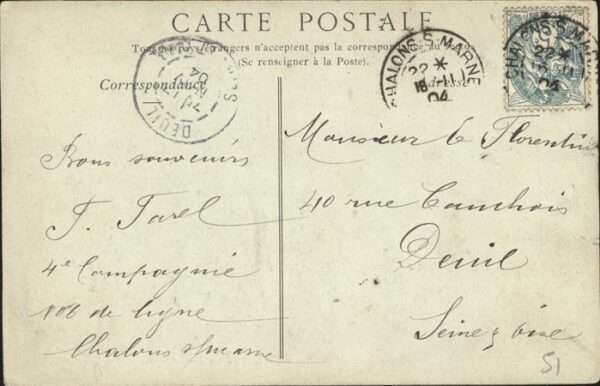 CARTE POSTALE
Tous les pays étrangers n'acceptent pas la correspondance au
(Se renseigner à la Poste).
Correspondance
Adresse
CHALONS-S-MARNE
22 *
11
04
CHALONS-S-MARNE
22 *
04
DEUIL
04
Bons souvenirs
F. Tarel
4e Compagnie
106 de ligne
Chalons s/marne
Monsieur G. Florentin
40 rue Cauchois
Deuil
Seine & Oise
51